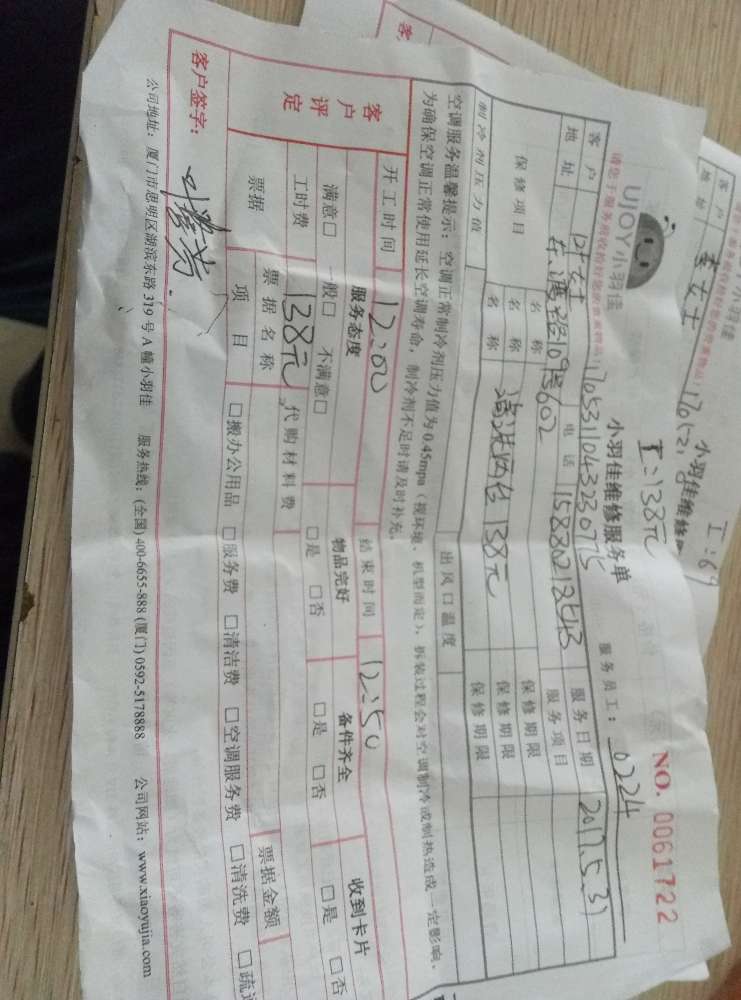 UJOY小羽佳
小羽佳维修服务单
工:138元
NO. 0061722
请您于服务前收拾好您的贵重物品!
170531104323077S
服务员工: 0224
客户
女士
电话
15880213513
服务日期
2017.5.31
地址
602
服务项目
保修项目
名称
清洗四台 138元
保修期限
名称
保修期限
名称
保修期限
制冷剂压力值
出风口温度
空调服务温馨提示: 空调正常制冷剂压力值为0.45mpa(视环境、机型而定),拆装过程会对空调制冷或制热造成一定影响,
为确保空调正常使用延长空调寿命,制冷剂不足时请及时补充。
开工时间
12:00
结束时间
12:50
客户评定
服务态度
物品完好
备件齐全
收到卡片
满意□ 一般□ 不满意□
□是 □否
□是 □否
□是 □否
工时费
138元
代购材料费
票据
票据名称
票据金额
项目
□搬办公用品 □服务费 □清洁费 □空调服务费 □清洗费 □疏
客户签字:
公司地址: 厦门市思明区湖滨东路319号A幢小羽佳 服务热线: (全国) 400-6655-888 (厦门) 0592-5178888 公司网站: www.xiaoyujia.com
小羽佳
客户
李女士
地址
小羽佳维修
工:69